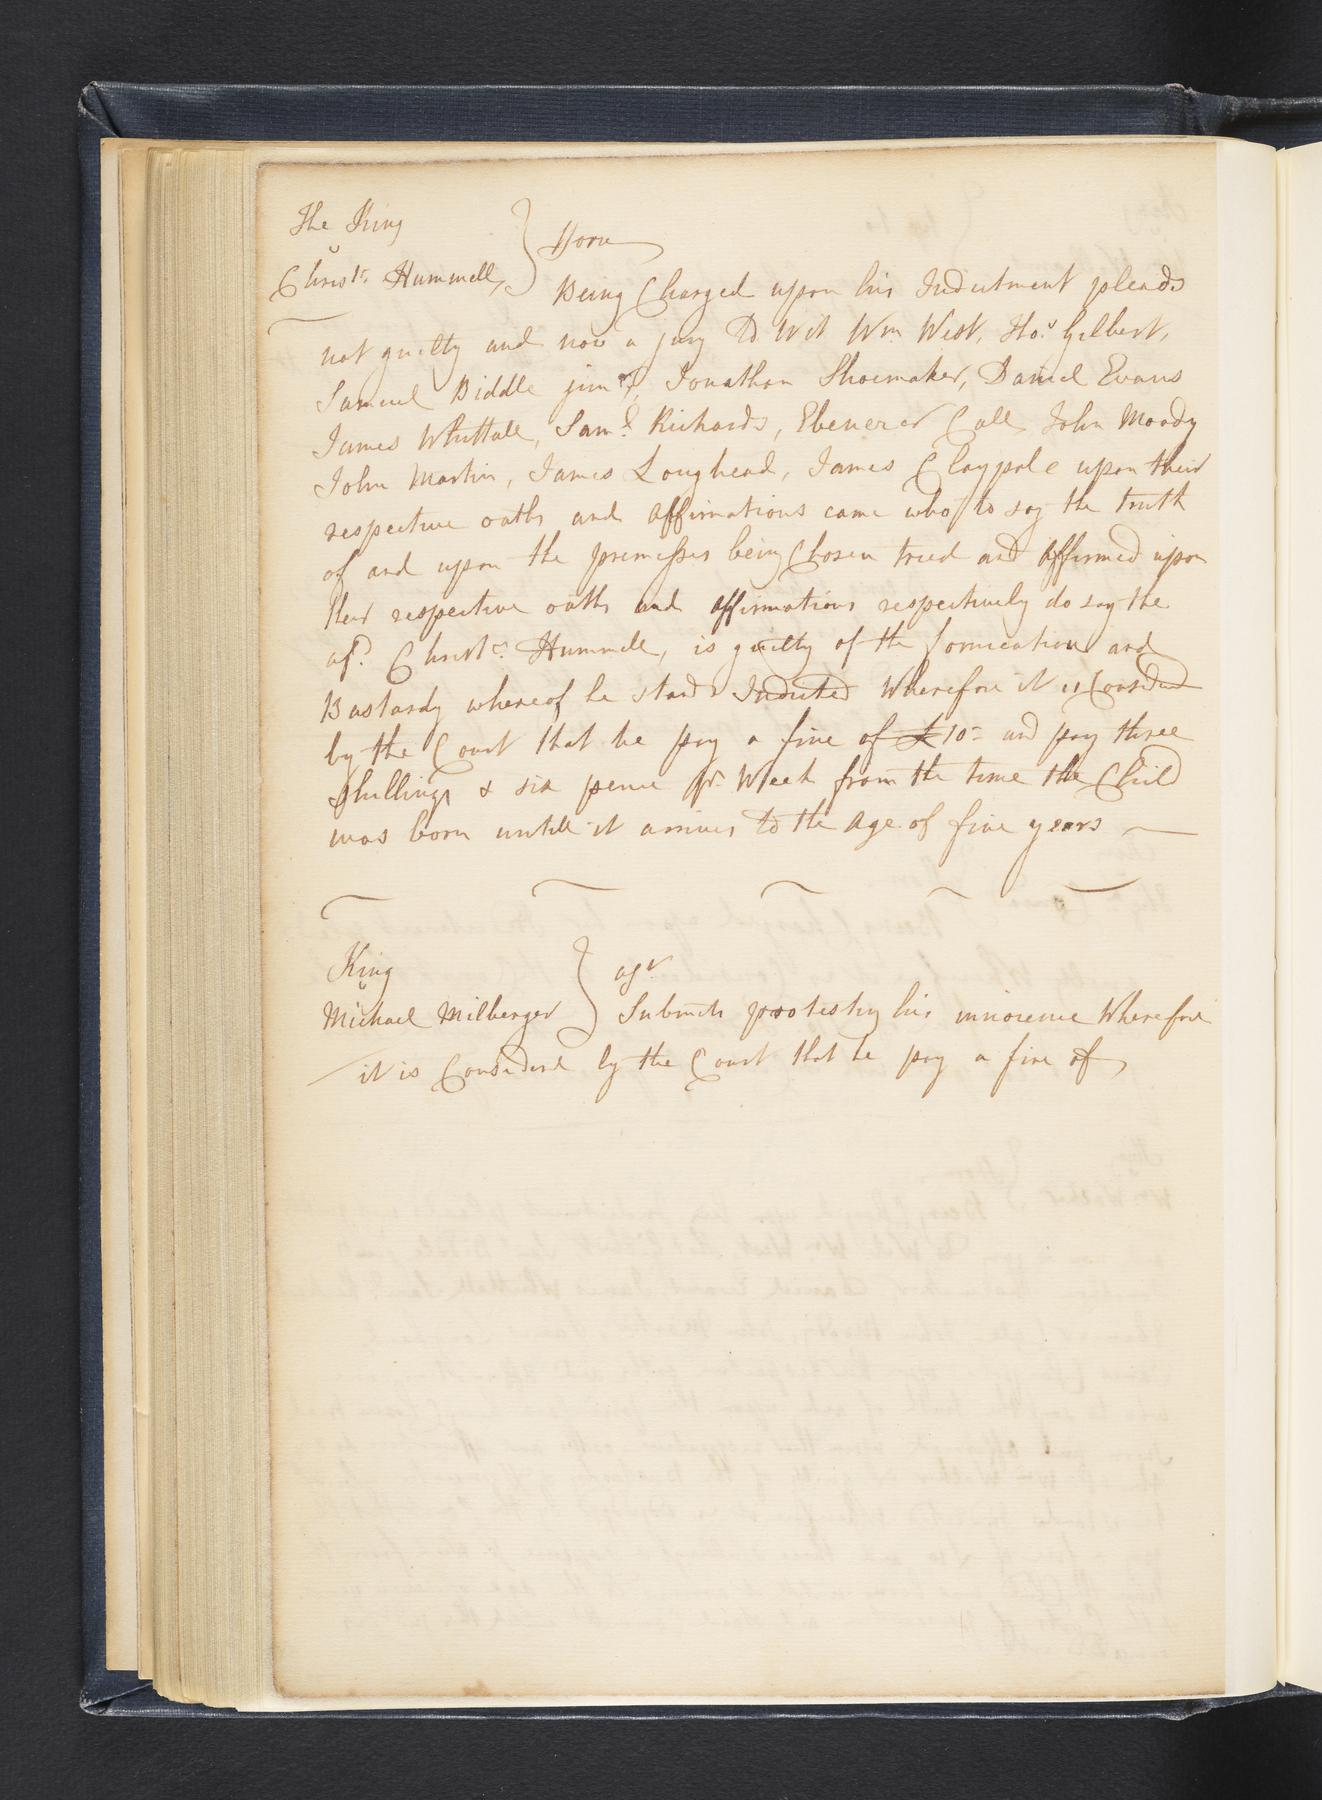 The King
v
Christr. Hummell, } Forn
Being Charged upon his Indictment pleads
not guilty and now a jury To Wit Wm. West, Tho.s Gilbert,
Samuel Biddle junr., Jonathan Shoemaker, Daniel Evans
James Whittall, Saml. Richards, Ebenezer Call, John Moody
John Martin, James Loughead, James Claypole upon their
respective oaths and affirmations came who to say the truth
of and upon the premesses being Chosen tried and affirmed upon
their respective oaths and affirmations respectively do say the
afd. Christr. Hummell, is guilty of the fornication and
Bastardy whereof he stands Indicted Wherefore it is Considered
by the Court that he pay a fine of £10= and pay three
Shillings & six pence pr. Week from the time the Child
was born untill it arrives to the Age of five years
King
v
Michael Milberger }
Submits protesting his innocence Wherefore
it is Considered by the Court that he pay a fine of